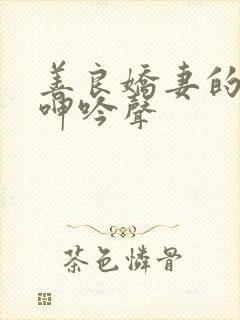 善良嬌妻的
呻吟聲
茶色憐骨